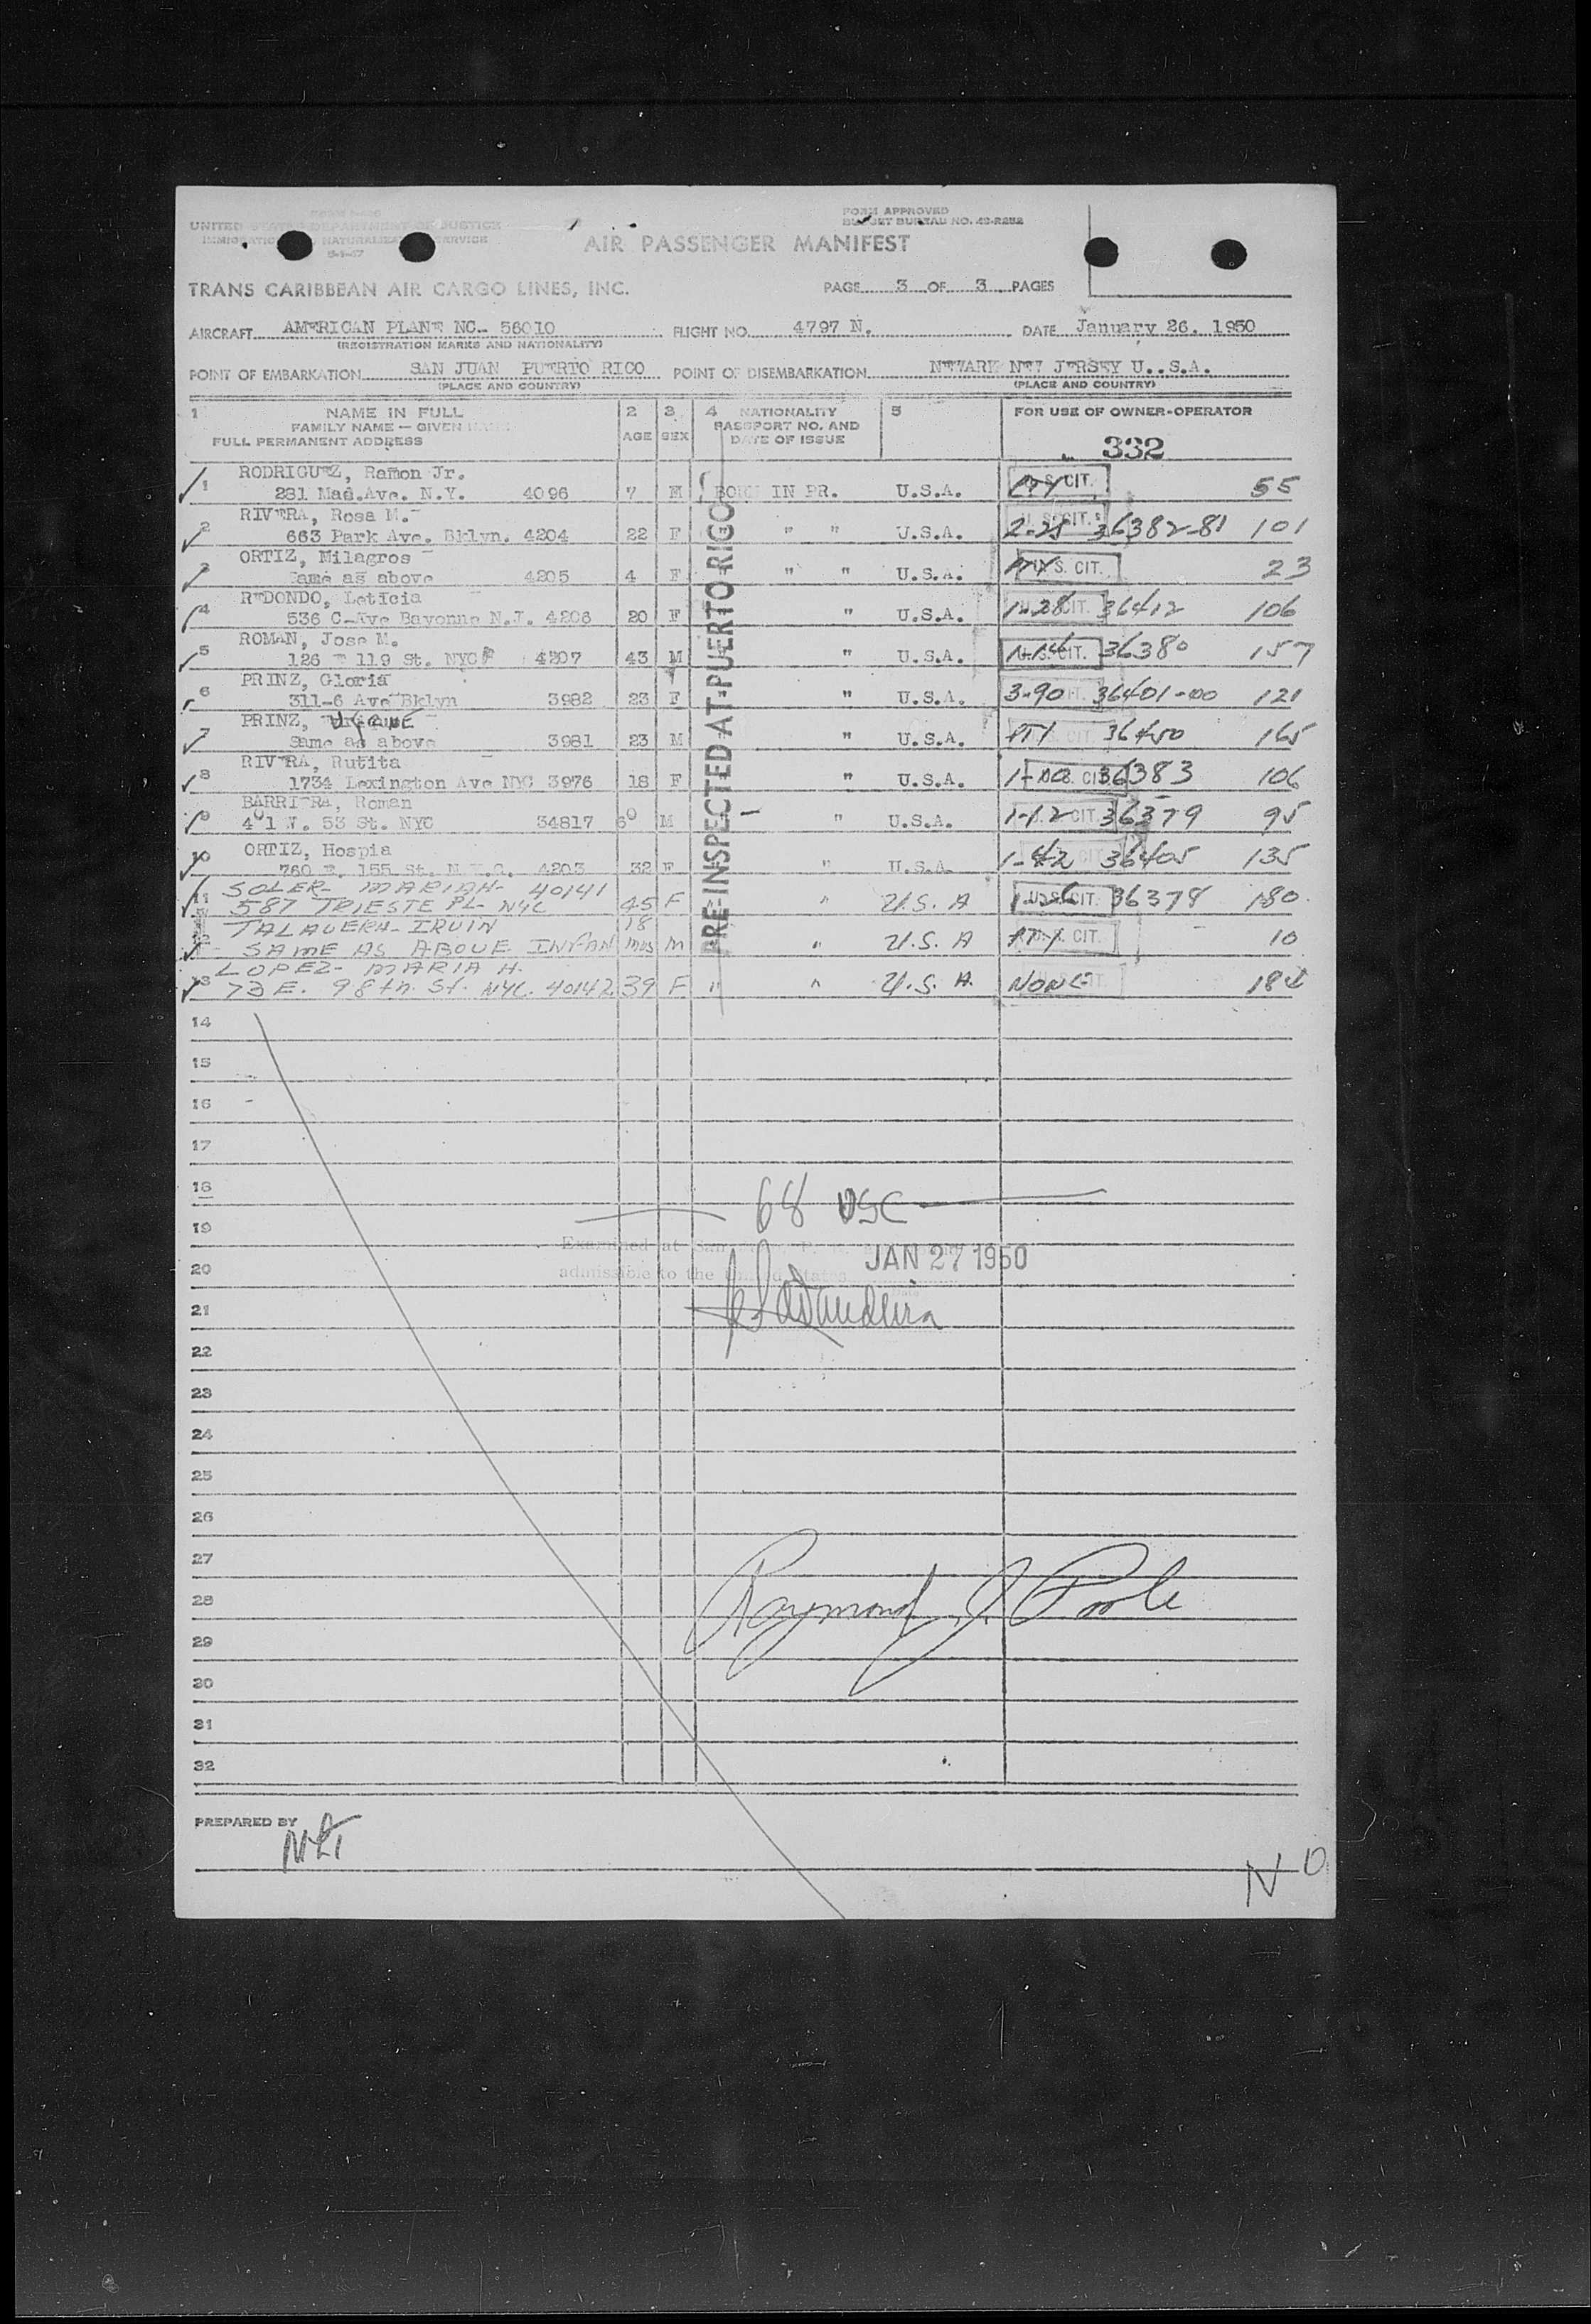 UNITED STATES DEPARTMENT OF JUSTICE
IMMIGRATION NATURALIZATION SERVICE
FORM APPROVED
BUDGET BUREAU NO. 43-R252
AIR PASSENGER MANIFEST
TRANS CARIBBEAN AIR CARGO LINES, INC.
PAGE 3 OF 3 PAGES
AIRCRAFT AMERICAN PLANE NC- 56010 FLIGHT NO. 4797 N. DATE January 26. 1950
(REGISTRATION MARKS AND NATIONALITY)
POINT OF EMBARKATION SAN JUAN PUERTO RICO POINT OF DISEMBARKATION NEWARK NEW JERSEY U..S.A.
(PLACE AND COUNTRY) (PLACE AND COUNTRY)
1 NAME IN FULL 2 3 4 NATIONALITY 5 FOR USE OF OWNER-OPERATOR
FAMILY NAME — GIVEN NAME PASSPORT NO. AND
FULL PERMANENT ADDRESS AGE SEX DATE OF ISSUE
332
PRE-INSPECTED AT PUERTO RICO
RODRIGUEZ, Ramon Jr.
1 281 Mad.Ave. N.Y. 4096 7 M BORN IN PR. U.S.A. U.S. CIT. 55
RIVERA, Rosa M.
2 663 Park Ave. Bklyn. 4204 22 F " " U.S.A. 2-25 36382-81 101
ORTIZ, Milagros
3 Same as above 4205 4 F " " U.S.A. U.S. CIT. 23
REDONDO, Leticia
4 536 C-Ave Bayonne N.J. 4206 20 F " U.S.A. 1-28 36412 106
ROMAN, Jose M.
5 126 E 119 St. NYC 4207 43 M " U.S.A. 36380 157
PRINZ, Gloria
6 311-6 Ave Bklyn 3982 23 F " U.S.A. 3-90 36401-00 121
PRINZ,
7 Same as above 3981 23 M " U.S.A. PTY 36450 165
RIVERA, Rutita
8 1734 Lexington Ave NYC 3976 18 F " U.S.A. 36383 106
BARRERA, Roman
9 401 W. 53 St. NYC 34817 60 M " U.S.A. 1-12 36379 95
ORTIZ, Hospia
10 760 E. 155 St. N.Y.C. 4203 32 F " U.S.A. 1-42 36405 135
SOLER- MARIAH- 40141
11 587 TRIESTE PL- NYC 45 F " U.S. A U.S. CIT. 36378 180.
TALAVERA- IRVIN 18
12 SAME AS ABOVE INFAN mos M " U.S. A PTY CIT. 10
LOPEZ- MARIA H.
13 73 E. 98th. St. NYC. 40142 39 F " " U.S. A. NONE 184
14
15
16
17
18
68 USC
19
Examined at San
20 JAN 27 1950
admissible to the United States
21
22
23
24
25
26
27
28 Raymond J. Poole
29
30
31
32
PREPARED BY
N O